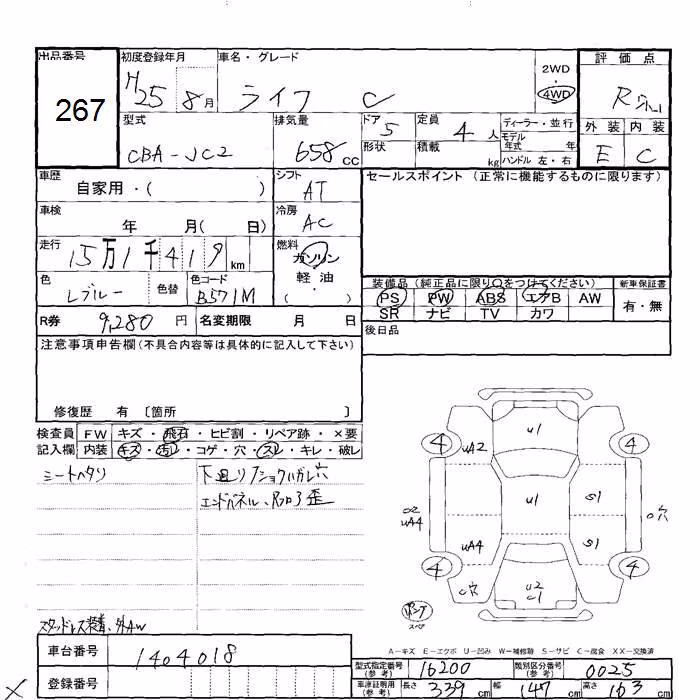 出品番号 初度登録年月 車名・グレード 評価点
267 H25 8月 ライフ C 2WD 4WD R
外装 内装
E C
型式 排気量 ドア 定員 ディーラー・並行
CBA-JC2 658cc 5 4人 モデル年式 年
形状 積載 kg ハンドル 左・右
車歴 シフト セールスポイント (正常に機能するものに限ります)
自家用・( ) AT
車検 冷房
年 月( 日) AC
走行 燃料
15万1千419km ガソリン
軽油
( )
色 色替 色コード
Lブルー B571M
装備品(純正品に限り○をつけてください) 新車保証書
PS PW ABS エアB AW 有・無
SR ナビ TV カワ
R券 9,280円 名変期限 月 日
後日品
注意事項申告欄(不具合内容等は具体的に記入して下さい)
修復歴 有 〔箇所 〕
検査員 FW キズ・飛石・ヒビ割・リペア跡・×要
記入欄 内装 キズ・汚レ・コゲ・穴・スレ・キレ・破レ
シートヘタリ 下廻り
エンドパネル、 歪
スタッドレス装着、外AW
4 4
uA2 u1
u1 S1
02 uA4 uA4 S1 穴
4 4
穴 u2 C1
パンク
スペア
A-キズ E-エクボ U-凹み W-補修跡 S-サビ C-腐食 XX-交換済
車台番号 1404018
登録番号
型式指定番号(参考) 16200 類別区分番号(参考) 0025
車庫証明用(参考) 長さ 339cm 幅 147cm 高さ 163cm
×